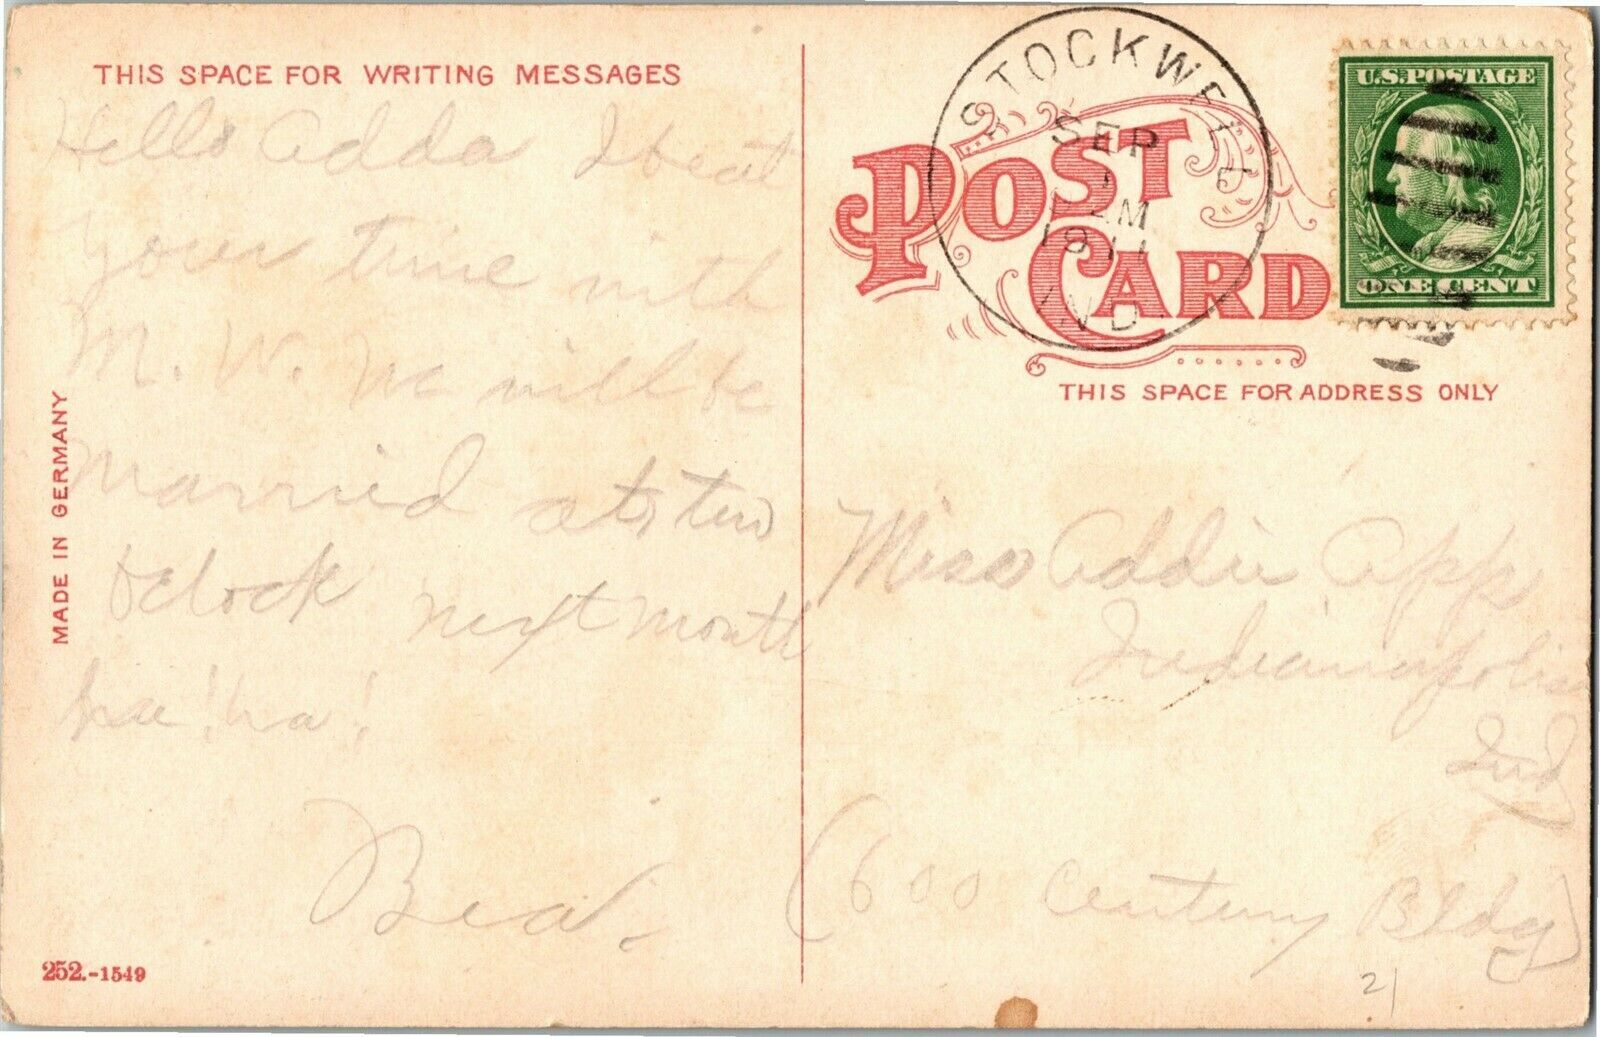 THIS SPACE FOR WRITING MESSAGES
Hello Adda I beat
your time with
M. W. We will be
married at two
o'clock next month
ha! ha!
Bea.
MADE IN GERMANY
252.-1549
POST CARD
STOCKWELL
SEP
1
AM
1911
IND.
U.S. POSTAGE
ONE CENT
THIS SPACE FOR ADDRESS ONLY
Miss Addie App
Indianapolis
Ind
(600 Century Bldg)
21